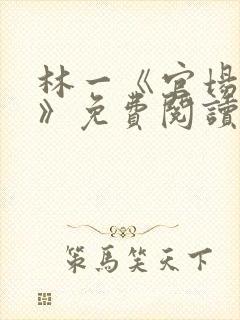 林一《官場
》免費閱讀
策馬笑天下